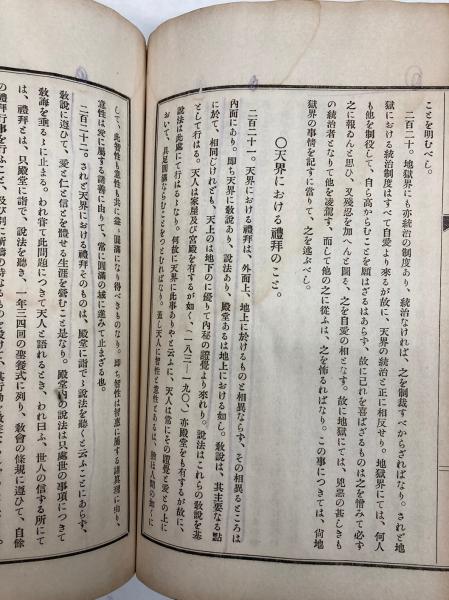 ことを明むべし。
二百二十。地獄界にも亦統治の制度あり、統治なければ、之を制裁すべからざればなり。されど地
獄における統治制度はすべて自愛より來るが故に、天界の統治と正に相反せり。地獄界にては、何人
も他を制役して、自ら高からむことを願はざるはあらず、故に己れを喜ばざるものは之を憎みて必ず
之に報ゐんと思ひ、又殘忍を加へんと圖る、之を自愛の相となす。故に地獄にては、兇惡の甚しきも
の統治者となりて他を凌駕す、而して他の之に從ふは、之を怖るればなり。この事につきては、尙地
獄界の事情を記すに當りて、之を述ぶべし。
〇天界における禮拜のこと。
二百二十一。天界における禮拜は、外面上、地上に於けるものと相異ならず、その相異るところは
內面にあり。卽ち天界にも敎說あり、說法あり、殿堂あるは地上における如し。敎說は、其主要なる點
に於て、相同じけれども、天上のは地下のに優りて內秘の證覺より來れり。說法はこれらの敎說を基
として行はる。天人は家屋及び宮殿を有するが如く、(一八三―一九〇)亦殿堂をも有するが故に、
說法は此處にて行はるゝなり。何故に天界に此事ありやと云ふに、天人は常にその證覺と愛との上に
おいて、具足圓滿ならむことをつとむればなり。蓋し天人に智性と意性とあるは、猶ほ人間の如くに
して、此智性も意性も共に益〻圓滿になり得べきものなり。卽ち智性は智慧に屬する諸眞理に由り、
意性は愛に屬する諸善に由りて、常に圓滿の域に進みて止まざる也。
二百二十二。されど天界における禮拜そのものは、殿堂に詣で、說法を聽くと云ふことにあらず、
敎說に遵ひて、愛と仁と信とを體せる生涯を營むこと是なり。殿堂內の說法は只處世の事項につきて
敎誨を垂るゝに止まる。われ嘗て此問題につきて天人と語れるとき、われ曰ふ、世人の信ずる所にて
は、禮拜とは、只殿堂に詣で、說法を聽き、一年三四回の聖餐式に列り、敎會の條規に遵ひて、自餘
の禮拜行事を行ふこと、及び別に祈禱の時などを設けて、